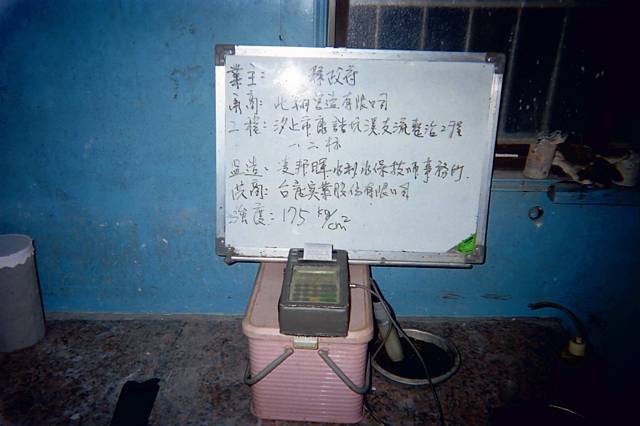 業主： 縣政府
承商：北 營造有限公司
工程：汐止市康誥坑溪支流整治工程
一、二标
監造：凌邦暉水利水保技師事務所
供商：台 實業股份有限公司
強度：175 kg/cm²